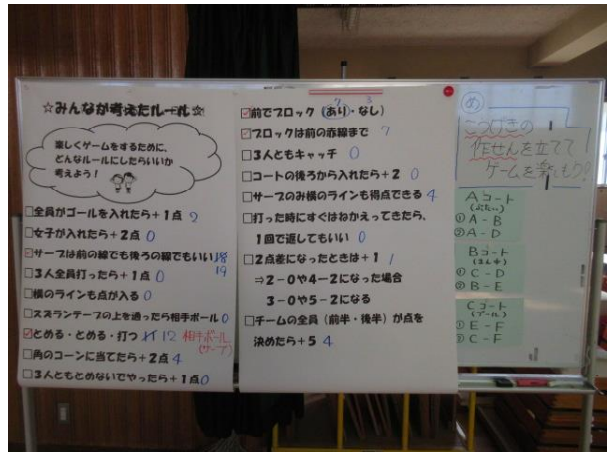 ☆みんなが考えたルール☆
楽しくゲームをするために、
どんなルールにしたらいいか
考えよう！
□全員がゴールを入れたら＋１点 2
□女子が入れたら＋２点 0
☑サーブは前の線でも後ろの線でもいい 18
19
□３人全員打ったら＋１点 0
□横のラインも点が入る 0
□スズランテープの上を通ったら相手ボール 0
☑とめる・とめる・打つ 12 相手ボール
(サーブ)
□角のコーンに当てたら＋２点 4
□３人ともとめないでやったら＋１点 0
7 3
☑前でブロック（あり・なし）
☑ブロックは前の赤線まで 7
□３人ともキャッチ 0
□コートの後ろから入れたら＋２ 0
□サーブのみ横のラインも得点できる 4
□打った時にすぐはねかえってきたら、
１回で返してもいい 0
□２点差になったときは＋１ 1
⇒２－０や４－２になった場合
３－０や５－２になる
□チームの全員（前半・後半）が点を
決めたら＋５ 4
め
こうげきの
作せんを立てて
ゲームを楽しもう!
Aコート
① A - B
② A - D
Bコート
① C - D
② B - E
Cコート
① E - F
② C - F